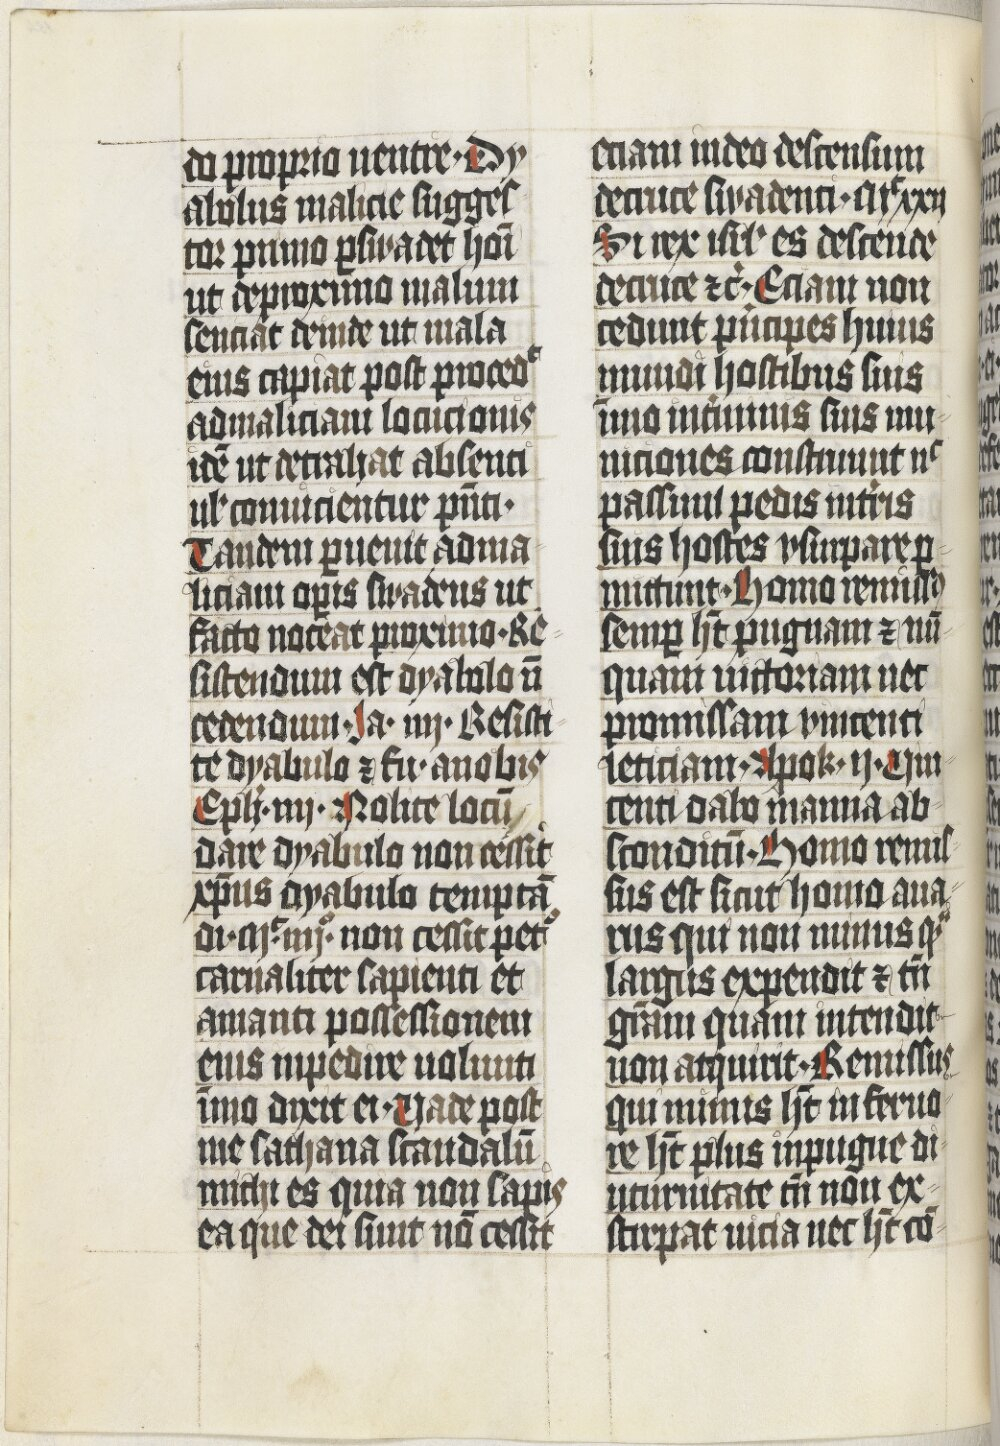 do proprio uentre· Dy
abolus malicie sugges
tor primo ꝑswadet hoī
ut deproximo malum
senciat deinde ut mala
eius capiat post proced͛
admaliciam locucionis
idē ut detrahat absenti
ul' conuicientur pn̄ti·
Tandem ꝑuenit adma
liciam oꝑis swadens ut
facto noceat proximo· Re
sistendum est dyabolo ñ
cedendum· Ja· iiij· Resisti
te dyabulo ⁊ fu· anobis
Eph̄· iiij· Nolite locū
dare dyabulo non cessit
xp̄us dyabulo temptā
di· iiij· non cessit pet͛
carnaliter sapienti et
amanti possessionem
eius inpedire uolunti
īmo dixit ei· Vade post
me sathana scandalū
michi es quia non sapis
ea que dei sunt nō cessit
eciam iudeo descensum
decruce swadenti· xxvij
Si rex isrl' es descende
decruce ⁊c̄· Eciam non
cedunt pn̄cipes huius
mundi hostibus suis
īmo intimis suis mu
niciones construunt n͛
passum pedis intr̄is
suis hostes vsurpare ꝑ
mittunt· Homo remissꝰ
semꝑ hꝫ pugnam ⁊ nū
quam uictoriam nec
promissam vincenti
leticiam· Apok· ij· Vin
centi dabo manna ab
sconditū· Homo remis
sus est sicut homo aua
rus qui non minus qͣ
largus expendit ⁊ tn̄
gr̄am quam intendit
non acquirit· Remissus
qui minus hꝫ in feruo
re hꝫ plus inpugne di
uturnitate tn̄ non ex
stirpat uicia nec hꝫ cō